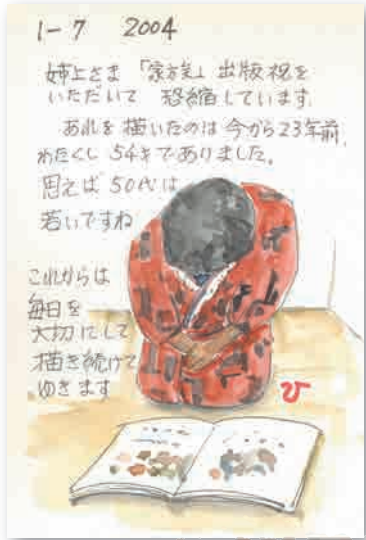 1-7 2004
姉上さま 「家族」 出版祝を
いただいて 恐縮しています
あれを 描いたのは 今から23年前、
わたくし 54才でありました。
思えば 50代は
若いですね
これからは
毎日を
大切にして
描き続けて
ゆきます
ひ